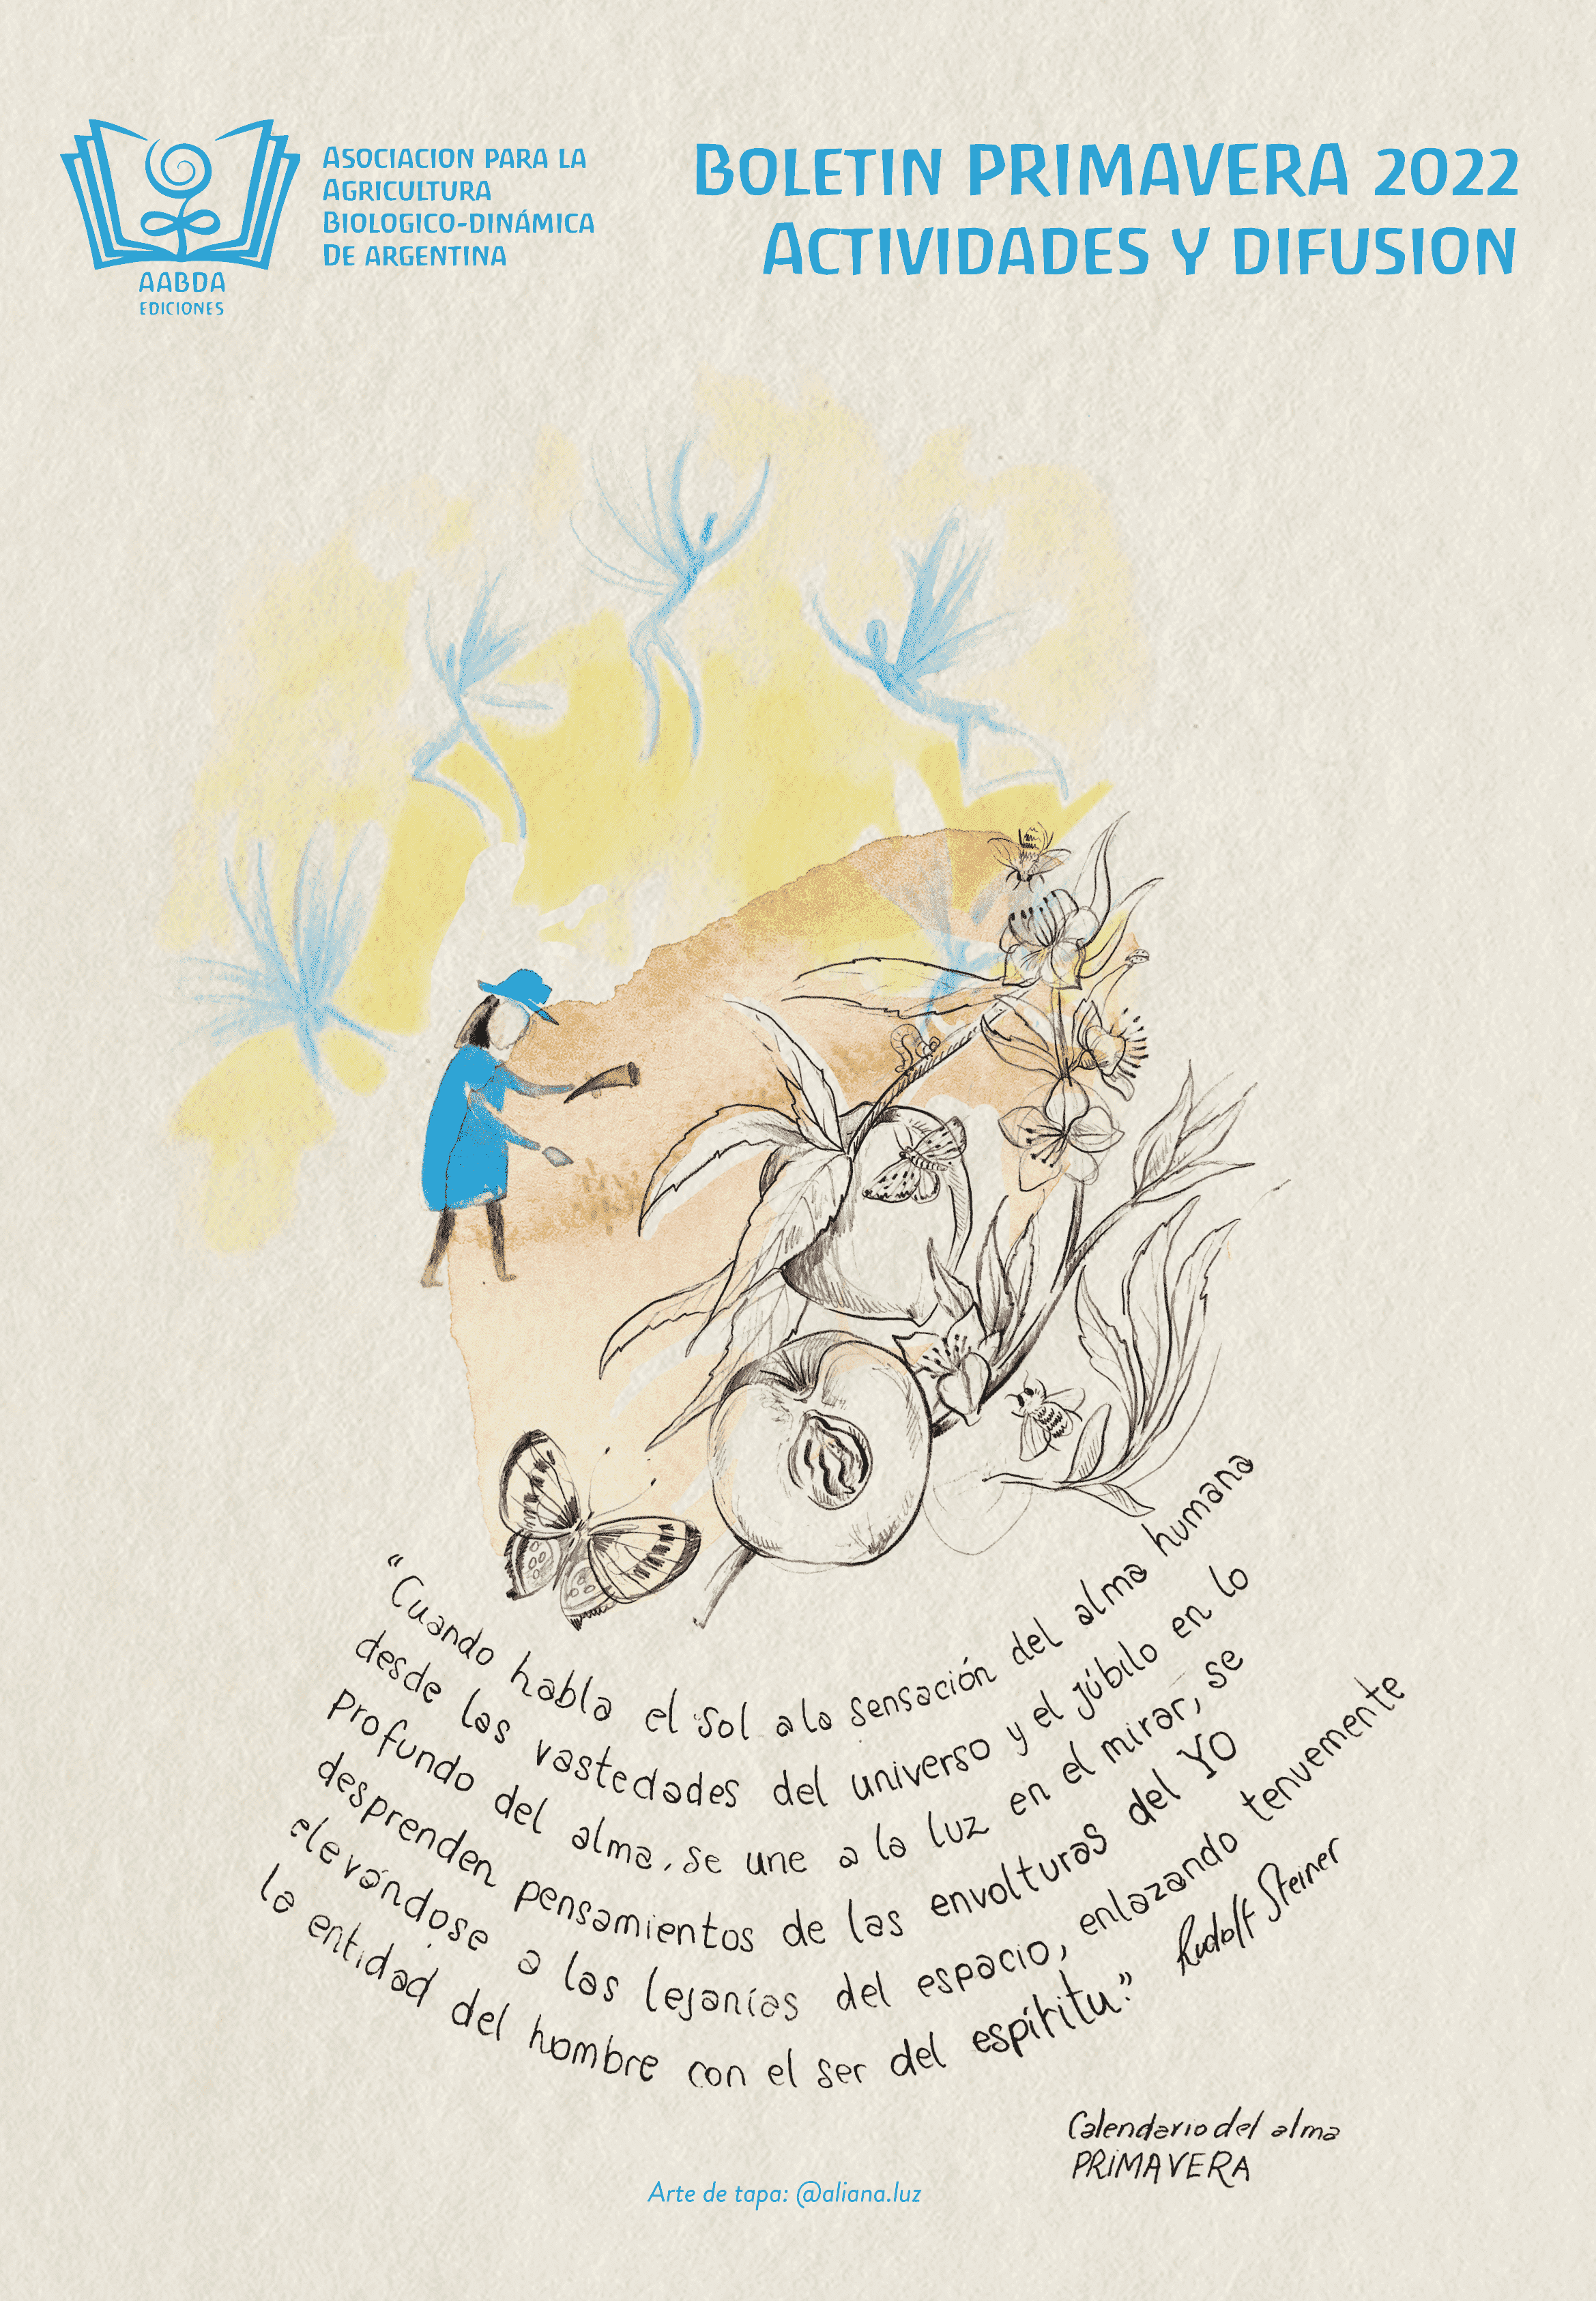 ASOCIACION PARA LA
AGRICULTURA
BIOLOGICO-DINÁMICA
DE ARGENTINA
AABDA
EDICIONES
BOLETIN PRIMAVERA 2022
ACTIVIDADES Y DIFUSION
“Cuando habla el sol a la sensación del alma humana
desde las vastedades del universo y el júbilo en lo
profundo del alma, se une a la luz en el mirar, se
desprenden pensamientos de las envolturas del YO
elevándose a las lejanías del espacio, enlazando tenuemente
la entidad del hombre con el ser del espíritu.”
Rudolf Steiner
Calendario del alma
PRIMAVERA
Arte de tapa: @aliana.luz